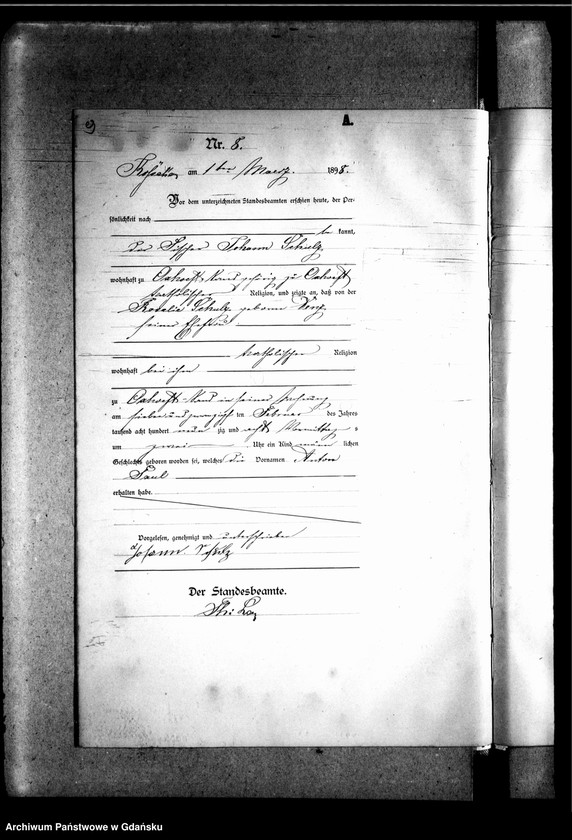 A.
Nr. 8.
am 1ten März 1898.
Vor dem unterzeichneten Standesbeamten erschien heute, der Per-
sönlichkeit nach
be kannt,
der Fischer Johann Schulz
wohnhaft zu Oxhöft
katholischer Religion, und zeigte an, daß von der
Rosalie Schulz geborne
seiner Ehefrau
katholischer Religion
wohnhaft bei ihm
zu Oxhöft in seiner Wohnung
am sieben und zwanzigsten Februar des Jahres
tausend acht hundert neun zig und acht Vormittag s
um zwei Uhr ein Kind männ lichen
Geschlechts geboren worden sei, welches die Vornamen Anton
Paul
erhalten habe.
Vorgelesen, genehmigt und unterschrieben
Johann Schulz
Der Standesbeamte.
Archiwum Państwowe w Gdańsku